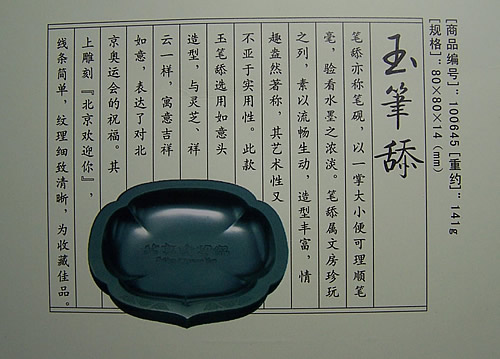 [商品编号]：100645 [重约]：141g
[规格]：80×80×14（mm）
玉筆舔
笔舔亦称笔砚，以一掌大小便可理顺笔
毫，验看水墨之浓淡。笔舔属文房珍玩
之列，素以流畅生动，造型丰富，情
趣盎然著称，其艺术性又
不亚于实用性。此款
玉笔舔选用如意头
造型，与灵芝、祥
云一样，寓意吉祥
如意，表达了对北
京奥运会的祝福。其
上雕刻『北京欢迎你』，
线条简单，纹理细致清晰，为收藏佳品。